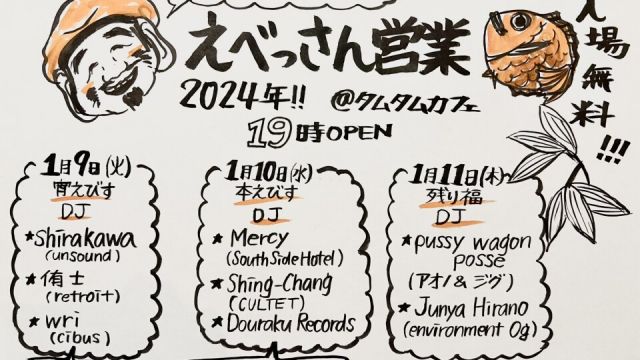 えべっさん営業
2024年!!  @タムタムカフェ
19時OPEN
入場無料!!!
1月9日(火)
宵えびす
DJ
★Shirakawa
(unsound)
★侑士
(retro1t)
★wri
(cibus)
1月10日(水)
本えびす
DJ
★Mercy
(South Side Hotel)
★Shing-Chang
(CULTET)
★Douraku Records
1月11日(木)
残り福
DJ
★pussy wagon
posse
(アオノ&ジグ)
★Junya Hirano
(environment 0g)